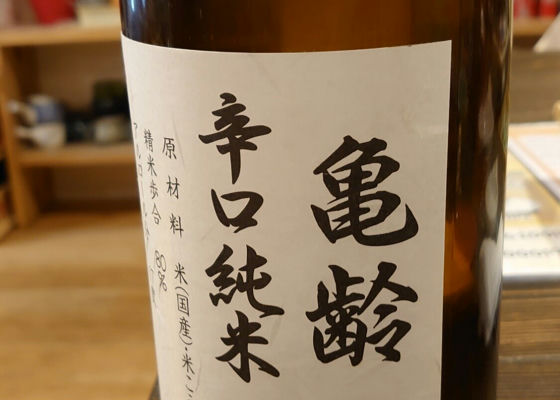 亀齢
辛口純米
原材料 米(国産)・米こ
精米歩合 80%
アルコール